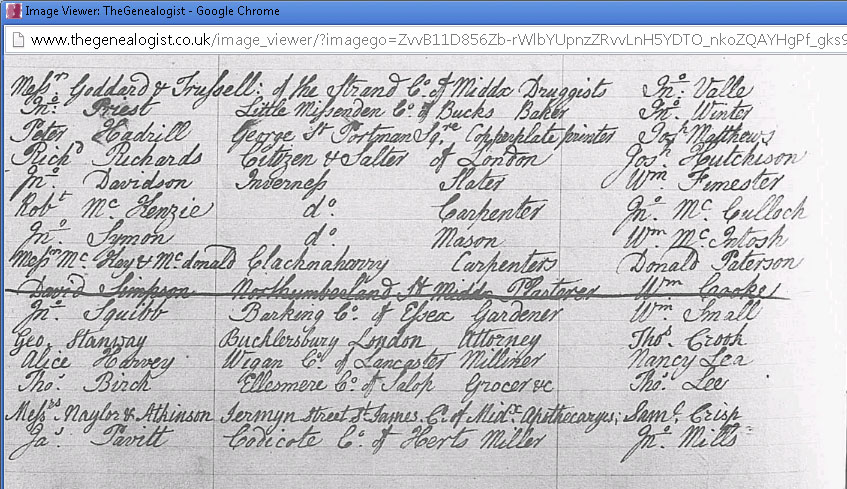 Image Viewer: TheGenealogist - Google Chrome
www.thegenealogist.co.uk/image_viewer/?imagego=ZvvB11D856Zb-rWlbYUpnzZRvvLnH5YDTO_nkoZQAYHgPf_gks9
Messrs Goddard & Trussell: of the Strand Co. of Middx Druggists Jno. Valle
Jno. Priest Little Missenden Co. of Bucks Baker Jno. Winter
Peter Hadrill George St Portman Sqre Copperplate printer Josh Matthews
Richd Richards Citizen & Salter of London Josh Hutchison
Jno. Davidson Inverness Slater Wm Fimester
Robt Mc Kenzie do. Carpenter Jno. Mc Culloch
Jno. Symon do. Mason Wm McIntosh
Messrs Mc Hay & Mcdonald Clachnaharry Carpenters Donald Paterson
David Simpson Northumberland St Middx Plasterer Wm Crooke
Jno. Squibb Barking Co. of Essex Gardener Wm Small
Geo. Stanway Bucklersbury London Attorney Thos. Crook
Alice Harvey Wigan Co. of Lancaster Milliner Nancy Lea
Tho. Birch Ellesmere Co. of Salop Grocer &c Tho. Lee
Messrs Naylor & Atkinson Jermyn Street St James. Co. of Midx Apothecarys; Saml Crisp
Jas Pavitt Codicote Co. of Herts Miller Jno. Mills